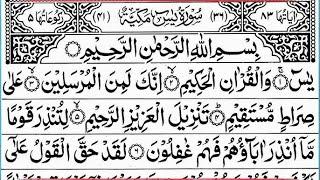 اٰیَاتُهَا ٨٣ (٣٦) سُوْرَةُ یٰسٓ مَكِّیَّةٌ (٤١) رُكُوْعَاتُهَا ٥
بِسْمِ اللّٰهِ الرَّحْمٰنِ الرَّحِیْمِ
یٰسٓ ۚ‏﴿۱﴾ وَالْقُرْاٰنِ الْحَكِیْمِ ۙ‏﴿۲﴾ اِنَّكَ لَمِنَ الْمُرْسَلِیْنَ ۙ‏﴿۳﴾ عَلٰی
صِرَاطٍ مُّسْتَقِیْمٍ ؕ‏﴿۴﴾ تَنْزِیْلَ الْعَزِیْزِ الرَّحِیْمِ ۙ‏﴿۵﴾ لِتُنْذِرَ قَوْمًا
مَّاۤ اُنْذِرَ اٰبَآؤُهُمْ فَهُمْ غٰفِلُوْنَ ‏﴿۶﴾ لَقَدْ حَقَّ الْقَوْلُ عَلٰۤی